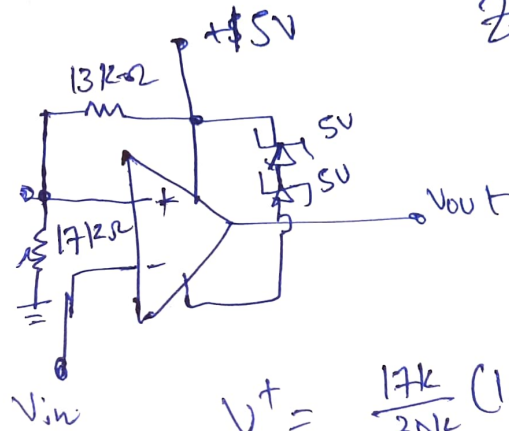 +$5V
Z
13kΩ
5V
5V
+
Vout
17kΩ
-
Vin
V⁺ = 17k (1